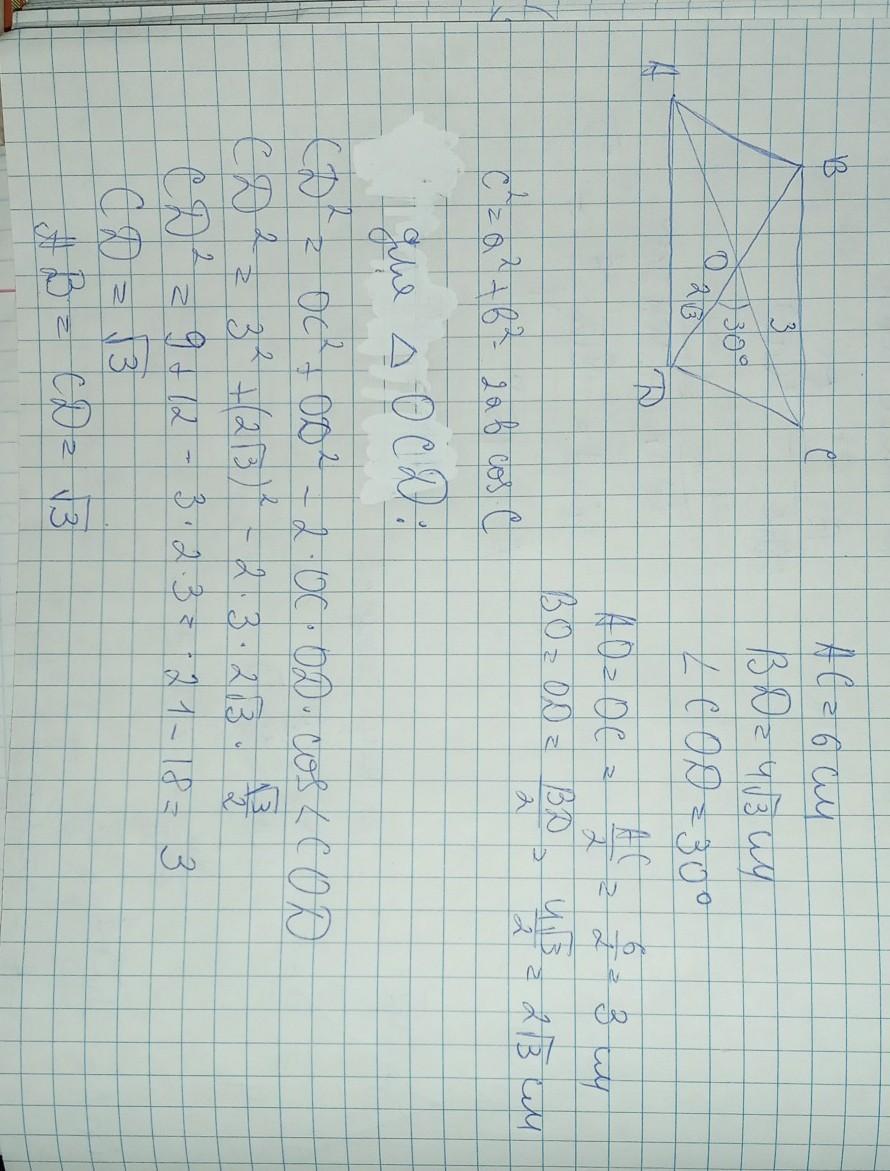 B
C
3
30°
O
2√3
A
D
AC = 6 см
BD = 4√3 см
∠ COD = 30°
AO = OC = AC/2 = 6/2 = 3 см
BO = OD = BD/2 = 4√3/2 = 2√3 см
c² = a² + b² - 2ab cos C
для △ OCD:
CD² = OC² + OD² - 2 · OC · OD · cos ∠ COD
CD² = 3² + (2√3)² - 2 · 3 · 2√3 · √3/2
CD² = 9 + 12 - 3 · 2 · 3 = 21 - 18 = 3
CD = √3
AB = CD = √3